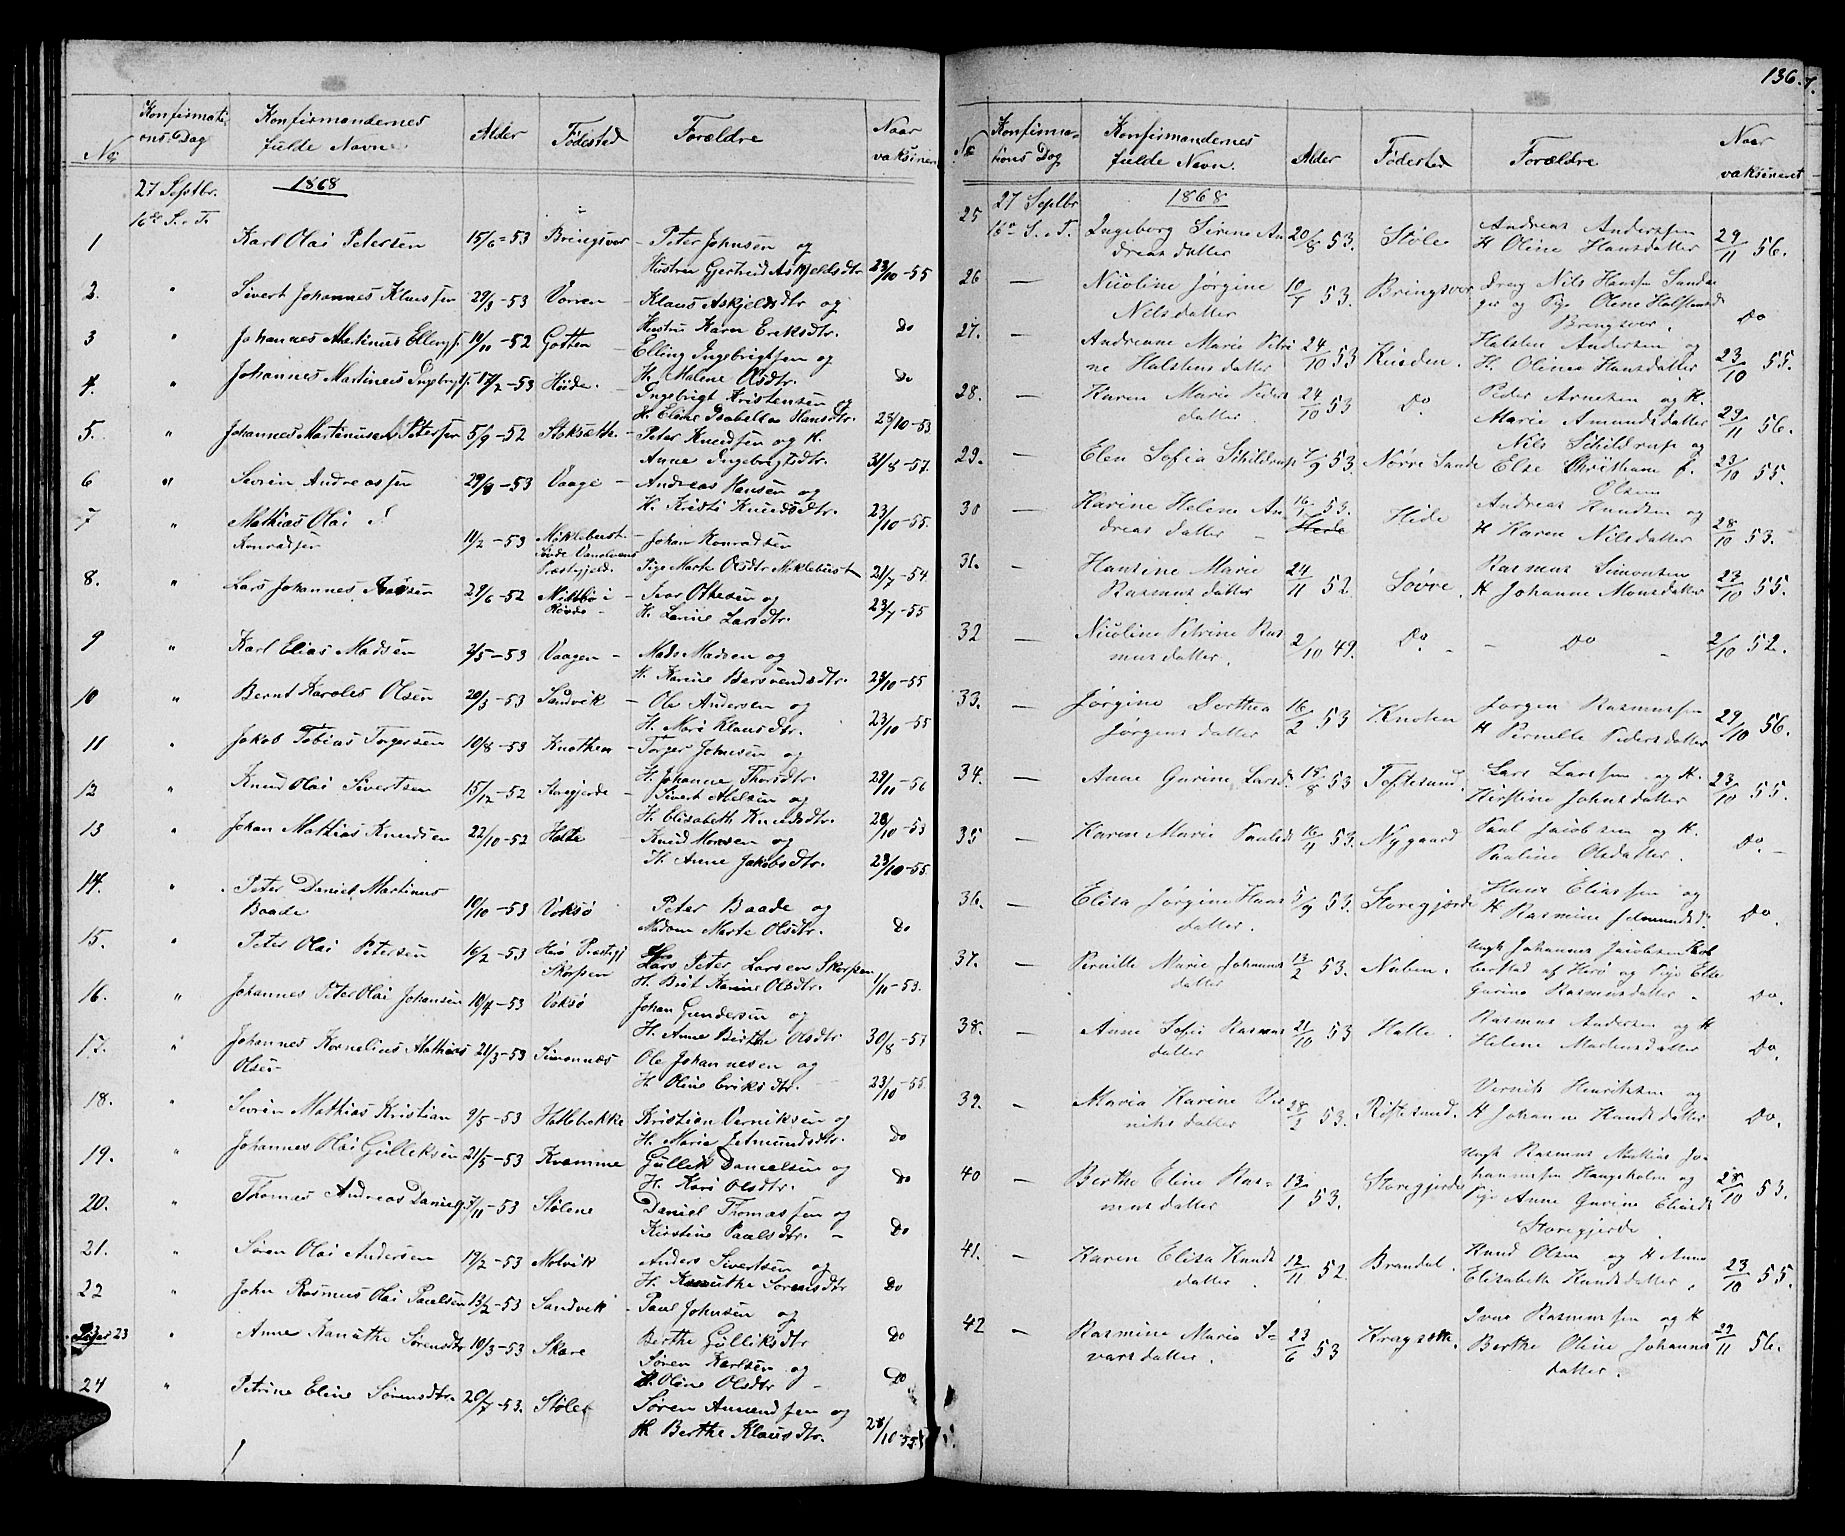 136.
Konfirmati-
ons Dag
Konfirmandernes
fulde Navne
Alder
Fødested
Forældre
Naar
No
27 Septbr.
1868
1 Karl Olai Petersen 15/6-53 Bringsvor - Peter Johnsen og
Hustru Gjertrud Askjeldsdtr. 23/10-55
2. " Sivert Johannes Klaussen 29/3-53 Vorren - Klaus Askjeldsdtr og
Hustru Karen Eriksdtr. Do
3 " Johannes Martinus 19/11-52 - Elling Ingebrigtsen og
H. Malene Olsdtr. Do
4. " Johannes Martinus 17/2-53 - Ingebrigt Kristensen og
H. Eline Isabella Hansdtr. 28/10-53
5. " Johannes Martinusen Petersen 5/9-52 - Peter Knudsen og H.
Anne Ingebrigtsdtr. 31/8-57.
6 " Andreassen 29/8-53 Vaage - Andreas Hansen og
H. Kristi Knudsdtr. 23/10-55.
7 " Mathias Olai
Konradsen 11/2-53 Mykleb - Johan Konradsen
Præstegjeld. Pige Marte Olsdtr Myklebust 21/7-54
8. " Lars Johannes 29/6-52 - Ivar Ottesen og
H. Larsdtr. 23/7-55
9 " Karl Elias Madsen 3/5-53 Vaagen - Mads Madsen og
H. Karine 23/10-55
10 " Bernt Karoles Olsen 20/3-53 Sandvik - Ole Andersen og
H. Mari Klausdtr. 23/10-55
11 " Jakob Tobias Torgersen 10/8-53 Knotten - Torger Johnsen og
H. Johanne Thorsdtr. 29/11-56
12 " Knud Olai Sivertsen 15/12-52 - Sivert Abelsen og
H. Elisabeth Knudsdtr. 28/10-53
13 " Johan Mathias Knudsen 22/10-52 Hatle - Knud Monsen og
H. Anne Jakobsdtr. 23/10-55
14. " Peter Daniel Martinus
Baade 10/10-53 Voksø Peter Baade og
Madam Marte Olsdtr. Do
15. " Peter Olai Petersen 16/2-53 Herø Præstegj
Skorpen Lars Peter Larsen Skorpen
H. Birt Karine Olsdtr. 1/11-53.
16. " Johannes Peter Olai Johansen 10/4-53 Voksø Johan Gundersen og
H. Anne Birthe Olsdtr. 30/8-57
17. " Johannes Kornelius Mathias
Olsen 21/3-53 Simonnæs Ole Johannesen og
H. Oline Eriksdtr. 23/10-55
18. " Sevrin Mathias Kristian 9/5-53 Hatlebrekke Kristian Verniksen og
H. Marie Jetmundsdtr. Do
19. " Johannes Olai Gulliksen 21/5-53 Kvamme Gullik Danielsen og
H. Kari Olsdtr. Do
20. " Thomas Andreas 3/11-53 Stølene Daniel Thomassen og
Kirstine Paulsdtr. - Do
21. " Søren Olai Andersen 17/2-53 Molvik Anders Sivertsen og
H. Sørensdtr Do
22 " John Rasmus Olai Paulsen 13/2-53 Sandvik - Paul Johnsen og
Berthe Gulliksdtr Do
23 " Anne Kanuthe Sørensdtr 10/3-53 Skare Søren Karlsen og
H. Oline Olsdtr - Do
24 " Petrine Eline Sørensdtr. 20/7-53. Støle Søren Amundsen og
H. Berthe Klausdtr. 28/10-53
No Konfirma-
tions Dag
Konfirmandernes
fulde Navn.
Alder
Fødested
Forældre
Naar
vaksineret
27 Septbr
1868
25 Ingeborg Sirine An
dreasdatter 20/8 53. Støle Andreas Anderssen
H Oline Hansdatter 29/11 56.
26 — Nicoline Jørgine
Nilsdatter 10/7 53. Bringsvor Dreng Nils Hansen Sande
og Pige Olene
Bringsvor. Do
27. — Andreane Marie Petri
ne Halstensdatter 24/10 53 Halsten Andersen og
H. Oline Hansdatter 23/10 55.
28. — Karen Marie Peders
datter 24/10 53 Do. Peder Arnesen og H.
Marie Amundsdatter 29/11 56.
29. — Elen Sofia Schildrup 7/9 53. Nørre Sande Nils Schildrup og
Else Christiane f.
Olsen 23/10 55.
30 — Karine Helene An
dreasdatter 16/7 53. Hide Andreas Knudsen og
H Karen Nilsdatter 28/10 53.
31. — Hansine Marie
Rasmusdatter 24/11 52. Løvre. Rasmus Simonsen
H Johanne Monsdatter 23/10 55.
32 — Nicoline Petrine Ras
musdatter. 2/10 49. Do. - Do - 2/10 52.
33. — Jørgine Dorthea
Jørgensdatter 16/2 53 Knoten Jørgen Rasmussen
H Pernille Pedersdatter 29/10 56.
34. — Anne Gurine Larsd. 15/8 53 Toftesund. Lars Larssen og H.
Kirstine Johnsdatter 23/10 55.
35 — Karen Marie Paulsd 16/11 53. Nygaard Paul Jacobsen og H.
Pauline Olsdatter. Do. -
36. — Elisa Jørgine Hans
datter. 5/9 53. Storegjerde Hans Eliassen og
H Rasmine Do.
37. — Pernille Marie Johannes
datter 13/2 53. Ungk Johannes Jacobsen Kob
berstad af Herø og Pige
Gurine Rasmusdatter. Do.
38. — Anne Sofie Rasmus
datter 21/10 53 Hatle. Rasmus Andersen og H
Helene Martinsdatter Do.
39. — Maria Karine Ver
niksdatter 28/3 53. Riftesund. Vernik Henriksen og
H Johanne Knudsdatter Do.
40 — Berthe Eline Ras-
musdatter 13/1 53. Storegjerde Ungk Rasmus Mathias Jo
hannessen Haugsholm og
Pige Anne Gurine
Storegjerde. 28/10 53.
41. — Karen Elisa Knuds
datter. 12/11 52. Brandal. Knud Olsen og H Anne
Elisabeth Knudsdatter. 23/10 55.
42 — Rasmine Marie I=
varsdatter. 23/6 53 Ivar Rasmussen og H
Berthe Oline Johannes
datter. 29/11 56.